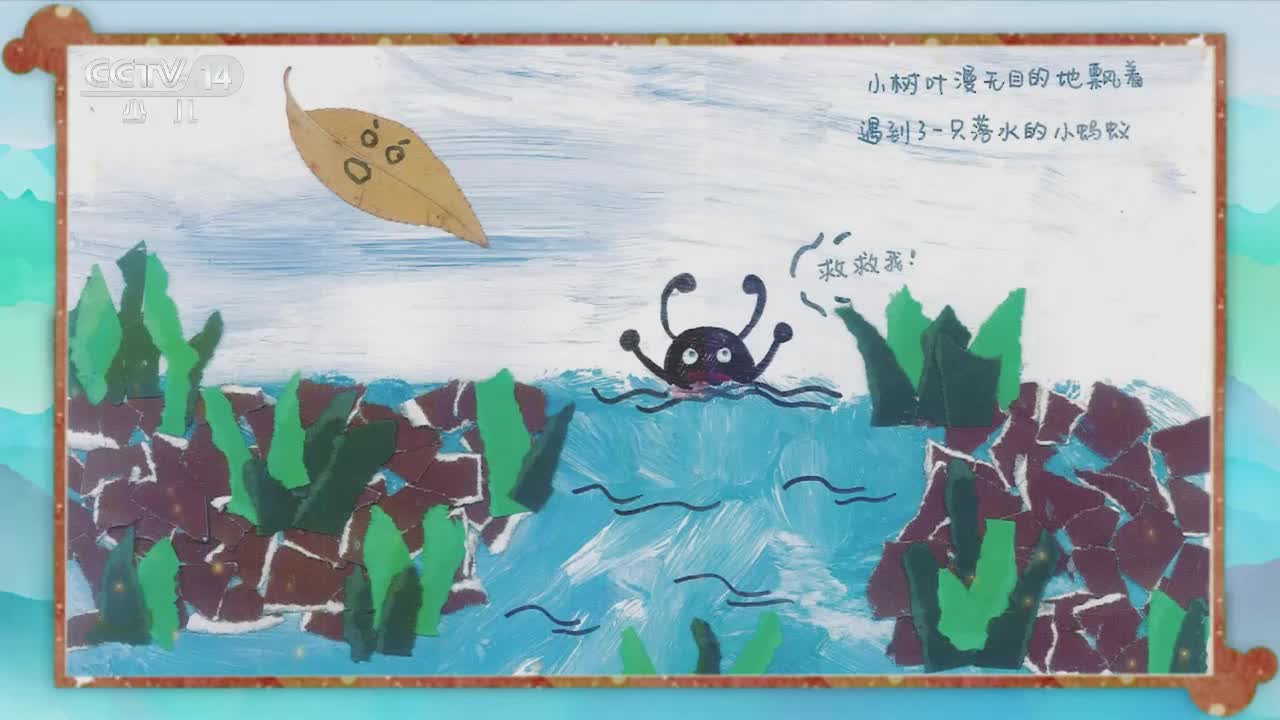 CCTV 14
少儿
小树叶漫无目的地飘着
遇到了一只落水的小蚂蚁
救救我！